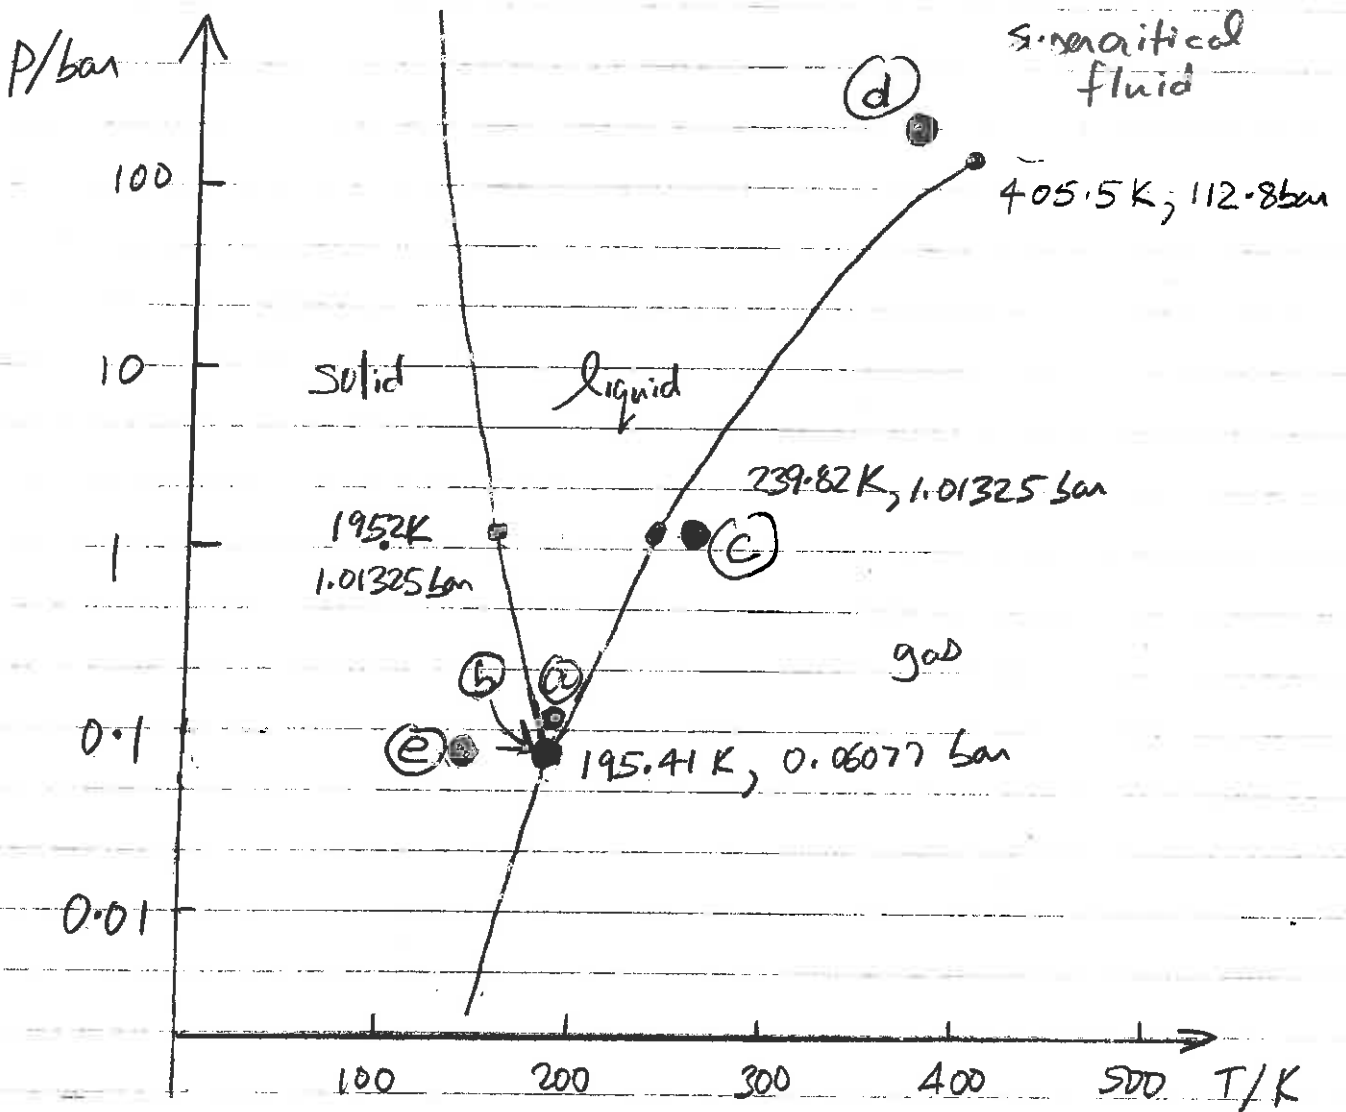 P/bar
supercritical
fluid
d
100
405.5K, 112.8bar
10
solid
liquid
239.82K, 1.01325 bar
195.2K
1.01325 bar
1
c
gas
b
a
0.1
e
195.41 K, 0.06077 bar
0.01
100
200
300
400
500
T/K